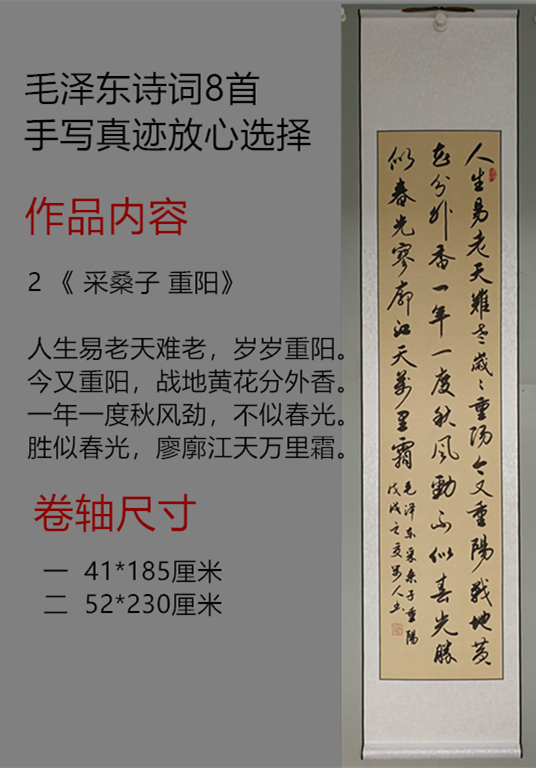 毛泽东诗词8首
手写真迹放心选择
作品内容
2 《 采桑子 重阳》
人生易老天难老，岁岁重阳。
今又重阳，战地黄花分外香。
一年一度秋风劲，不似春光。
胜似春光，廖廓江天万里霜。
卷轴尺寸
一 41*185厘米
二 52*230厘米
人生易老天難老歲〻重陽今又重陽戰地黄
花分外香一年一度秋風勁不似春光勝
似春光寥廓江天萬里霜
毛泽东采桑子重陽
戊戌之夏